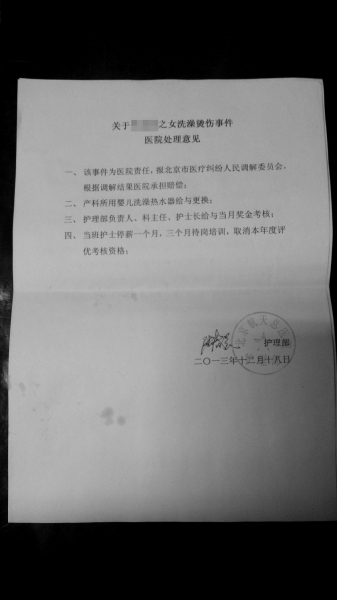 关于
之女洗澡烫伤事件
医院处理意见
一、该事件为医院责任，报北京市医疗纠纷人民调解委员会，
根据调解结果医院承担赔偿；
二、产科所用婴儿洗澡热水器给与更换；
三、护理部负责人、科主任、护士长给与当月奖金考核；
四、当班护士停薪一个月，三个月待岗培训，取消本年度评
优考核资格；
护理部
二〇一三年十二月十八日